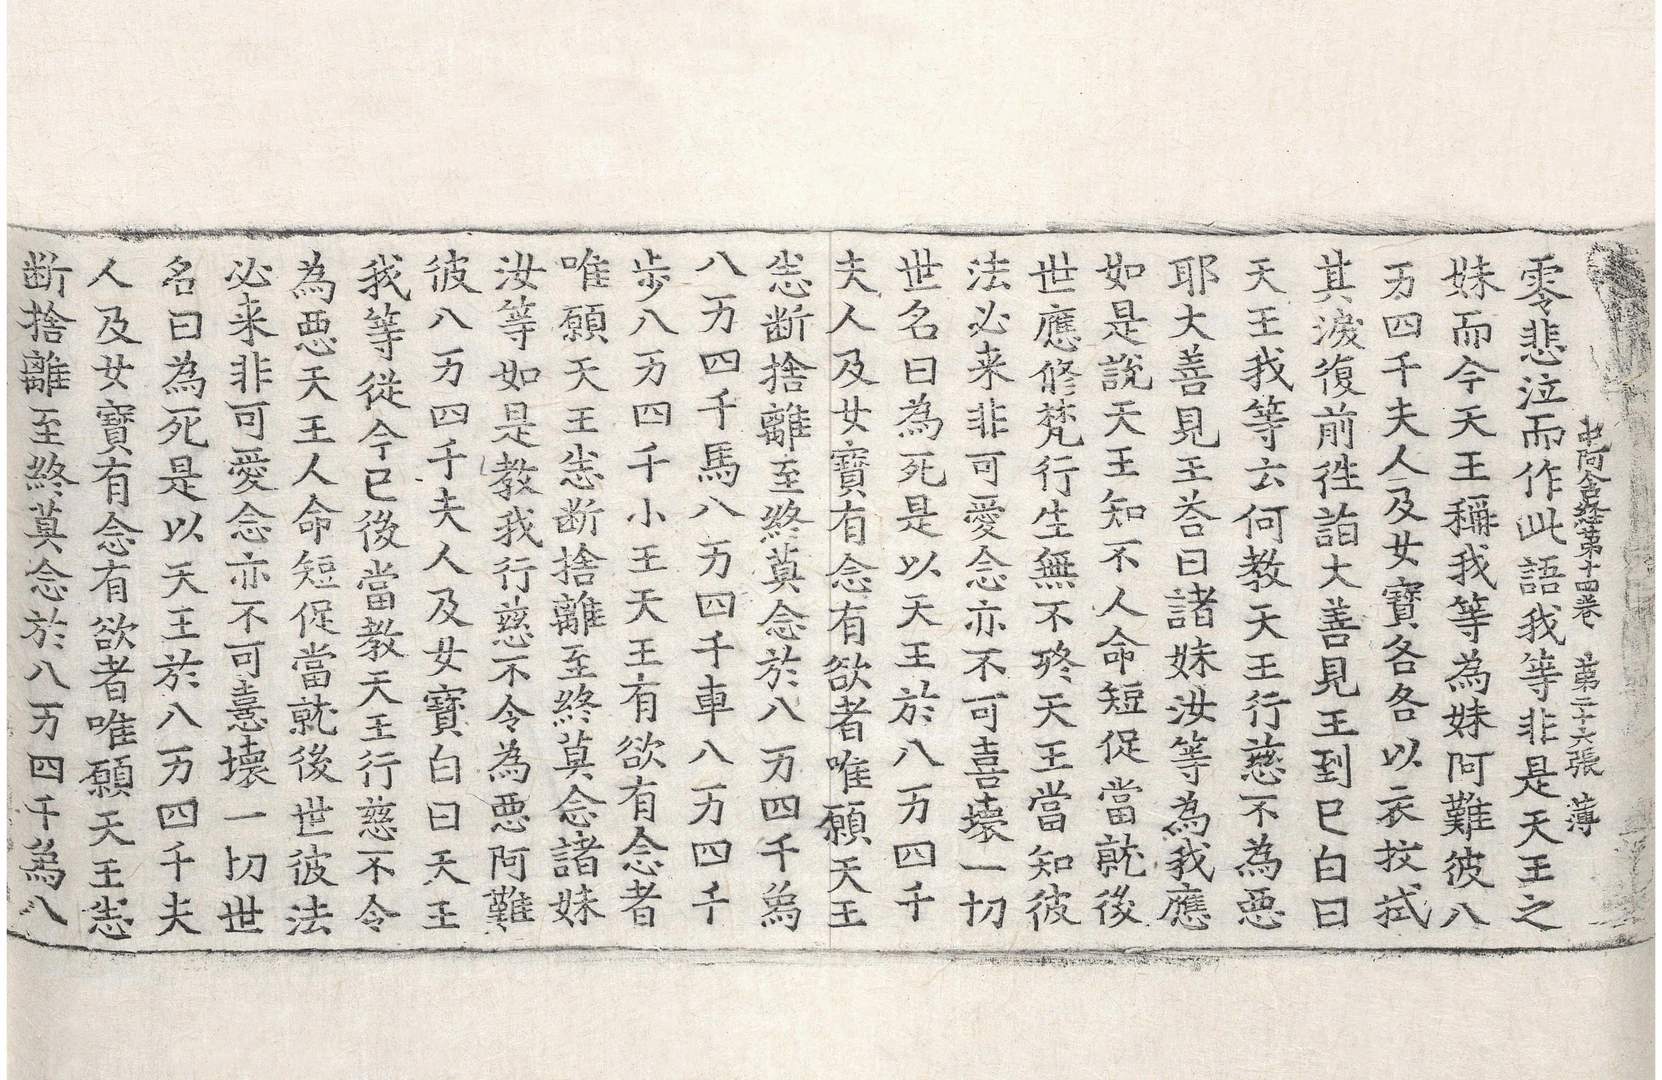 中阿含經第十四卷 第二十六張 薄
零悲泣而作此語我等非是天王之
妹而今天王稱我等為妹阿難彼八
万四千夫人及女寶各各以衣抆拭
其淚復前徃詣大善見王到已白曰
天王我等云何教天王行慈不為惡
耶大善見王荅曰諸妹汝等為我應
如是說天王知不人命短促當就後
世應修梵行生無不終天王當知彼
法必来非可愛念亦不可喜壞一切
世名曰為死是以天王於八万四千
夫人及女寶有念有欲者唯願天王
悉断捨離至終莫念於八万四千象
八万四千馬八万四千車八万四千
步八万四千小王天王有欲有念者
唯願天王悉断捨離至終莫念諸妹
汝等如是教我行慈不令為惡阿難
彼八万四千夫人及女寶白曰天王
我等從今已後當教天王行慈不令
為惡天王人命短促當就後世彼法
必来非可愛念亦不可憙壞一切世
名曰為死是以天王於八万四千夫
人及女寶有念有欲者唯願天王悉
断捨離至終莫念於八万四千象八